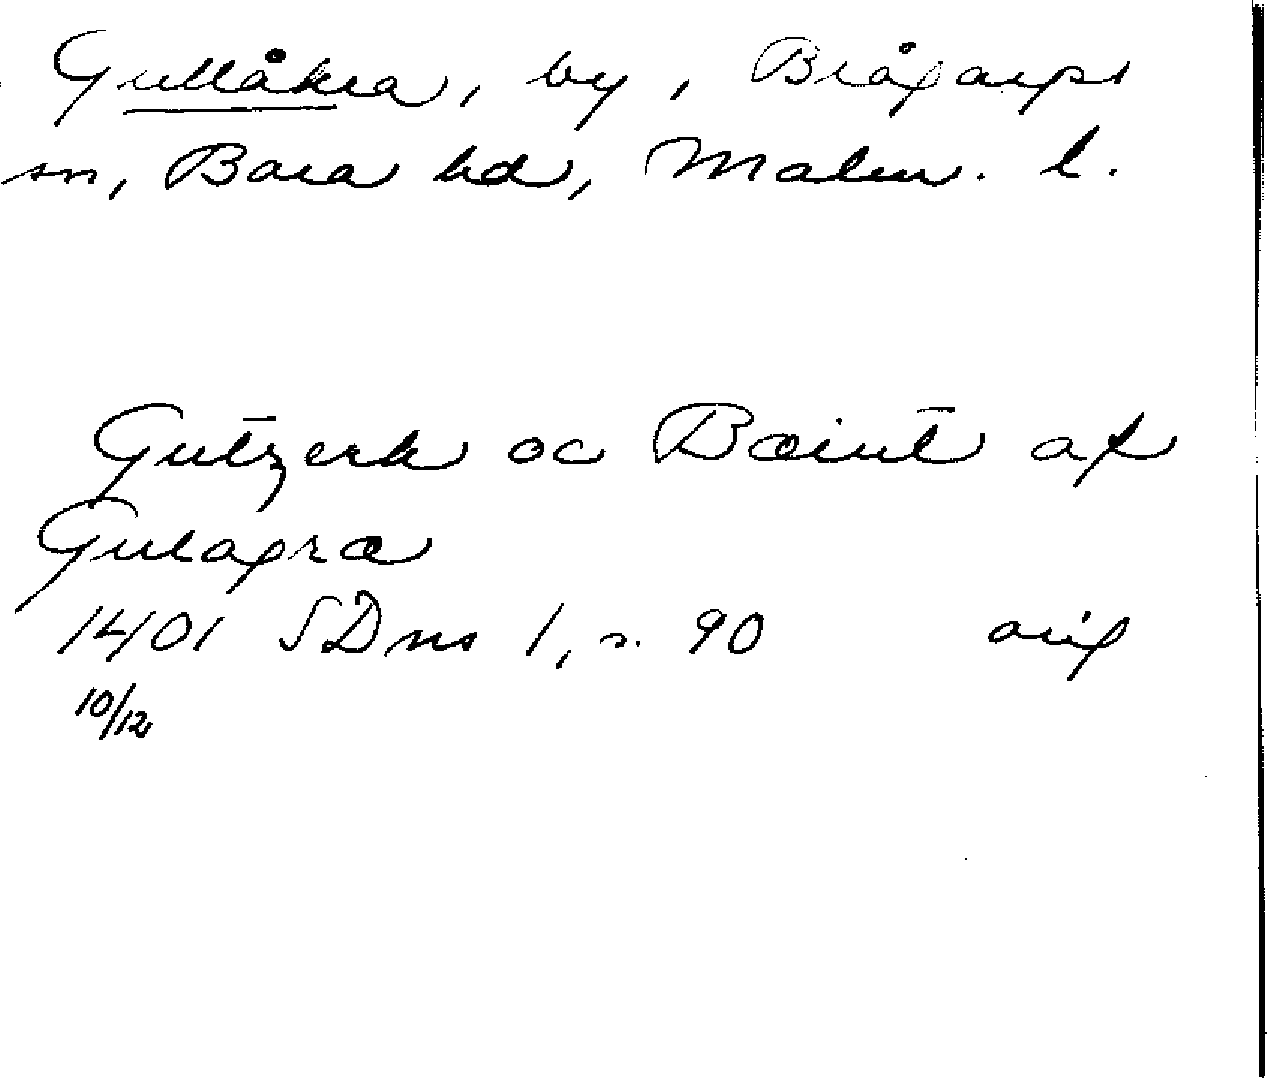 Gullåkra, by, Brågarps
sn, Bara hd, Malm. l.
Gutzerk oc Bæint af
Gulagræ
1401 SDns 1, s. 90 orig
10/12